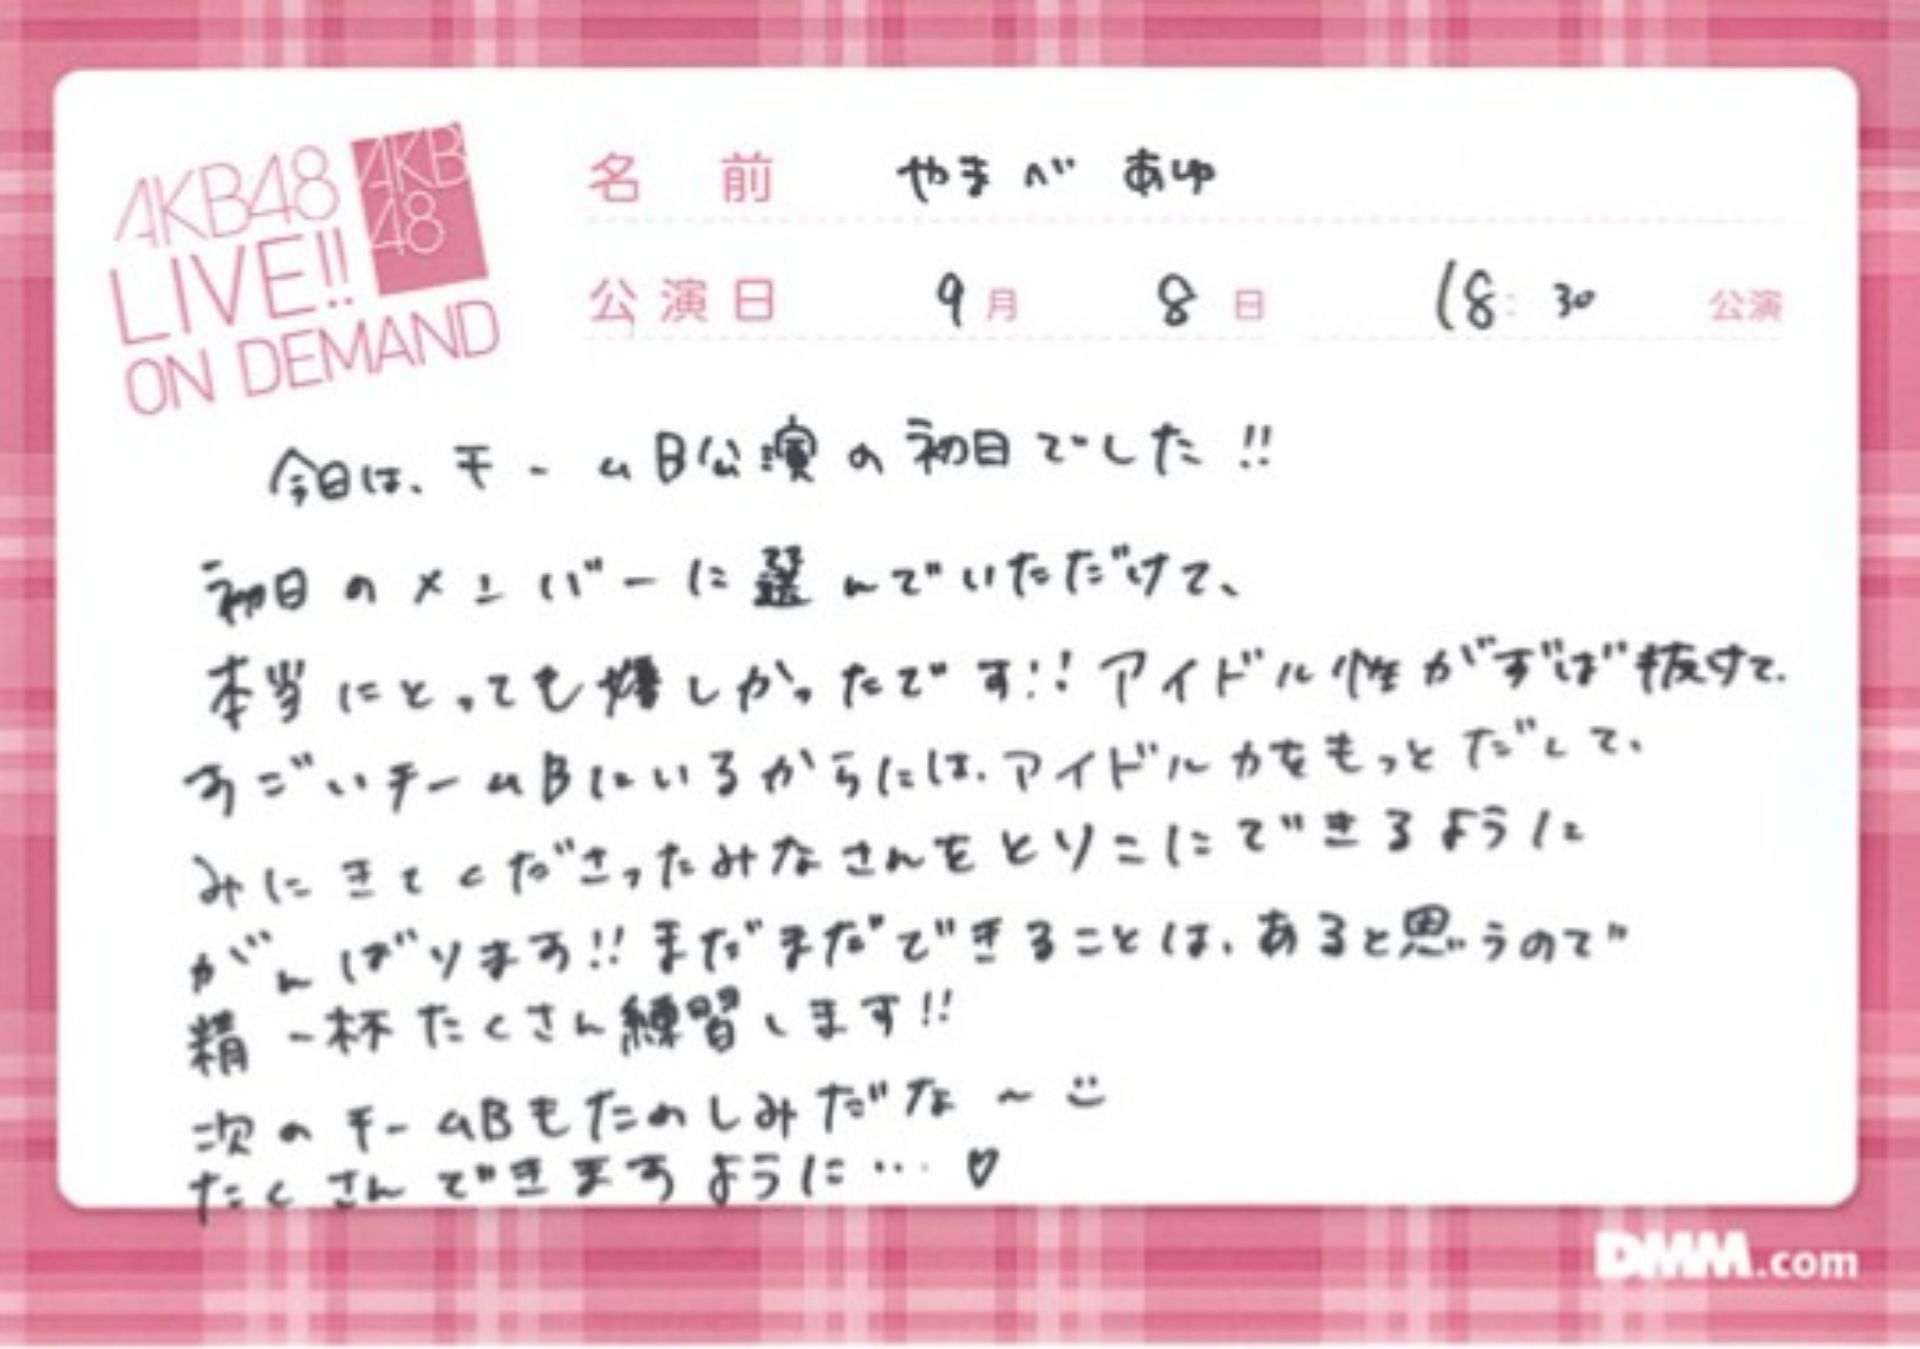 AKB48
LIVE!!
ON DEMAND
AKB
48
名前 やまべ あゆ
公演日 9月 8日 18:30 公演
今日は、チームB公演の初日でした!!
初日のメンバーに選んでいただけて、
本当にとっても嬉しかったです!! アイドル性がずば抜けて、
すごいチームBにいるからには、アイドル力をもっとだして、
みにきてくださったみなさんをとりこにできるように
がんばります!! まだまだできることは、あると思うので
精一杯たくさん練習します!!
次のチームBもたのしみだな〜
たくさんできますように…♡
DMM.com